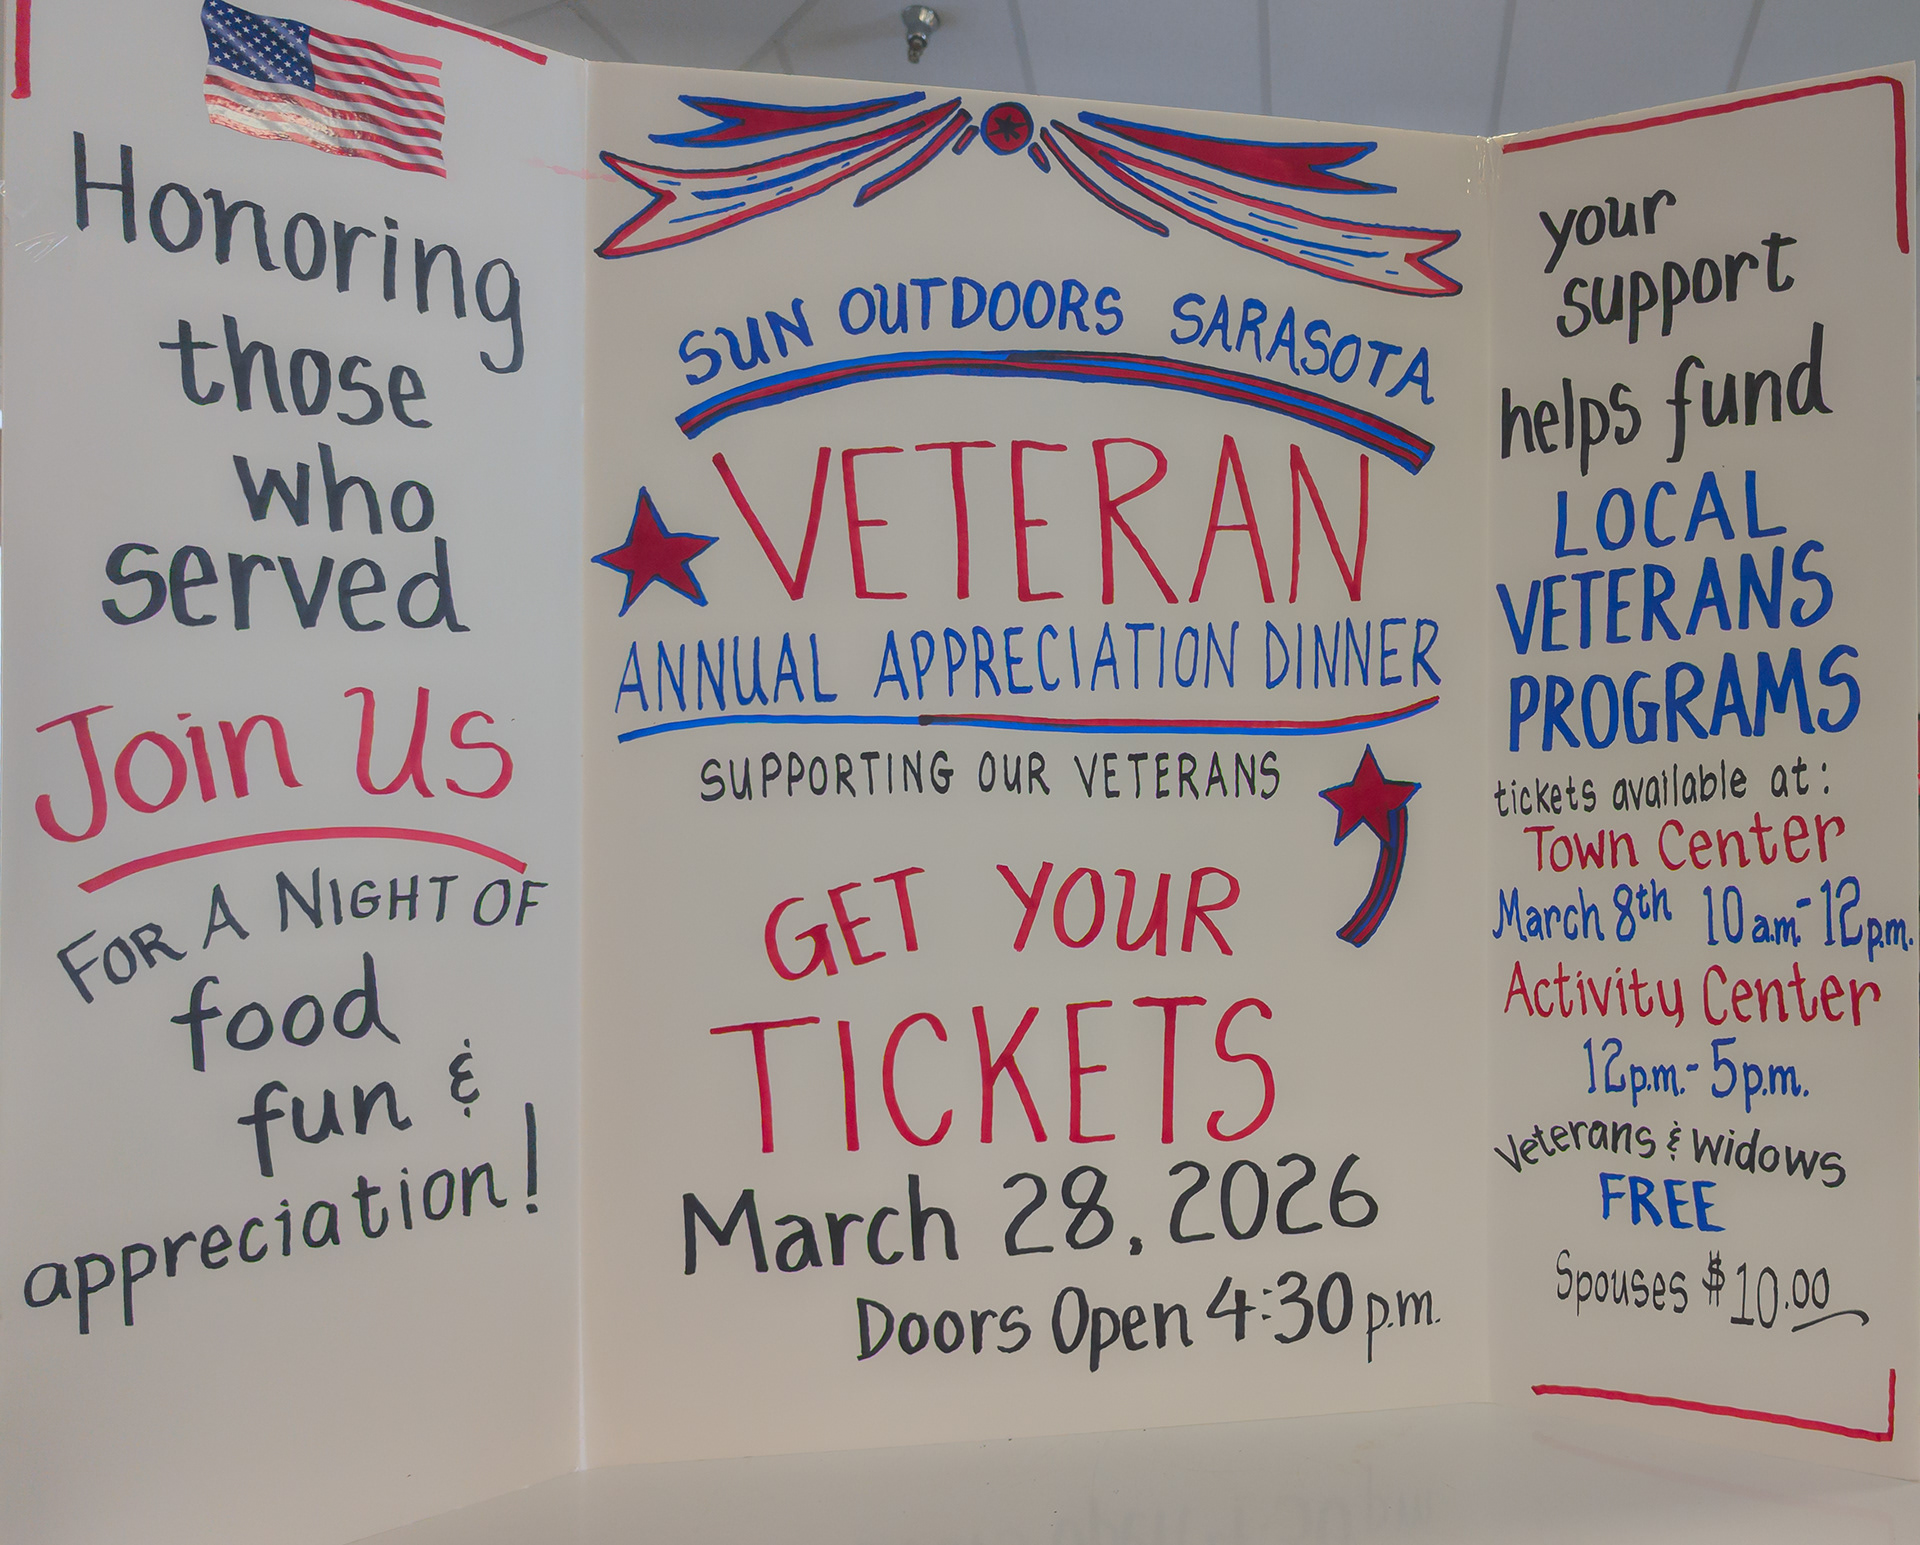 Honoring
those
who
served
Join Us
FOR A NIGHT OF
food
fun &
appreciation!
SUN OUTDOORS SARASOTA
VETERAN
ANNUAL APPRECIATION DINNER
SUPPORTING OUR VETERANS
GET YOUR
TICKETS
March 28, 2026
Doors Open 4:30 p.m.
your
support
helps fund
LOCAL
VETERANS
PROGRAMS
tickets available at:
Town Center
March 8th 10 a.m.-12 p.m.
Activity Center
12 p.m.-5 p.m.
Veterans & widows
FREE
Spouses $10.00